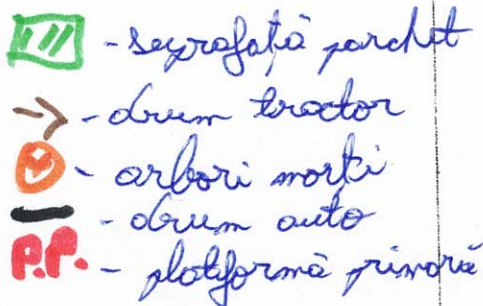 - seprafață parchet
- drum tractor
- arbori morți
- drum auto
P.P. - platformă primară